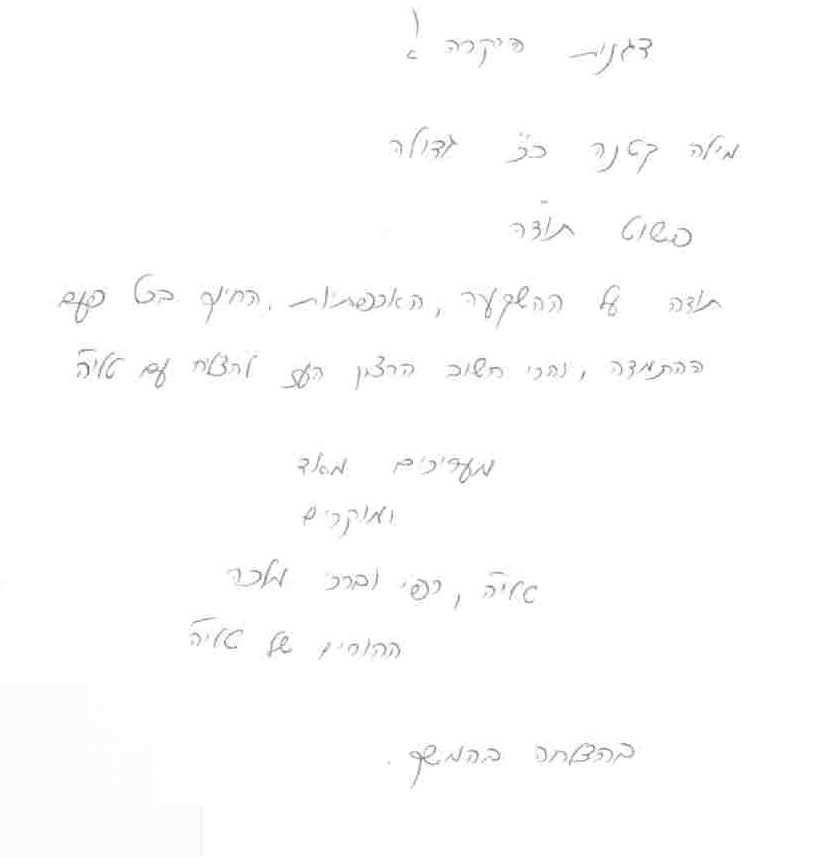 דגנית היקרה!
מילה קטנה כ"כ גדולה
פשוט תודה
תודה על ההשקעה, האכפתיות, החיוך בכל פעם
ההתמדה, והכי חשוב הרצון העז להצליח עם טליה
מעריכים מאוד
ומוקירים
טליה, רפי וברכי מלכה
ההורים של טליה
בהצלחה בהמשך.